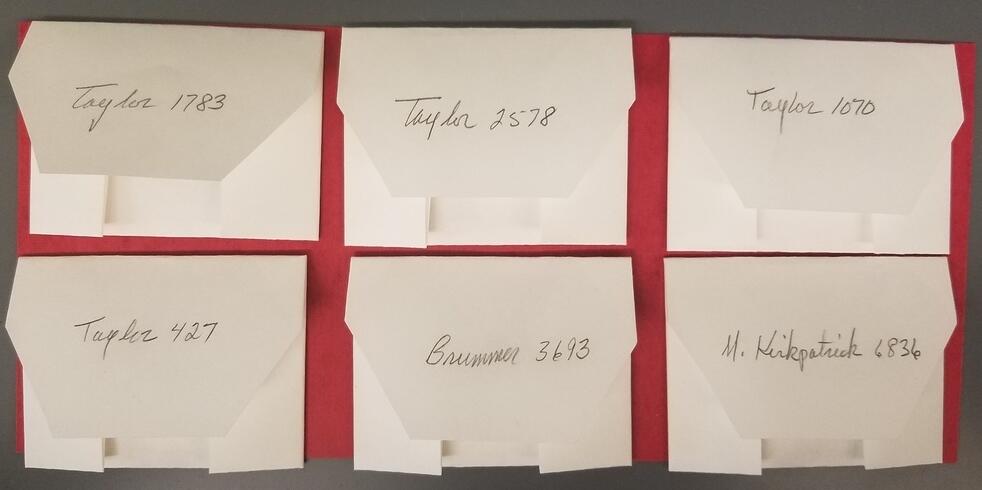 Taylor 1783
Taylor 2578
Taylor 1070
Taylor 427
Brummer 3693
M. Kirkpatrick 6836